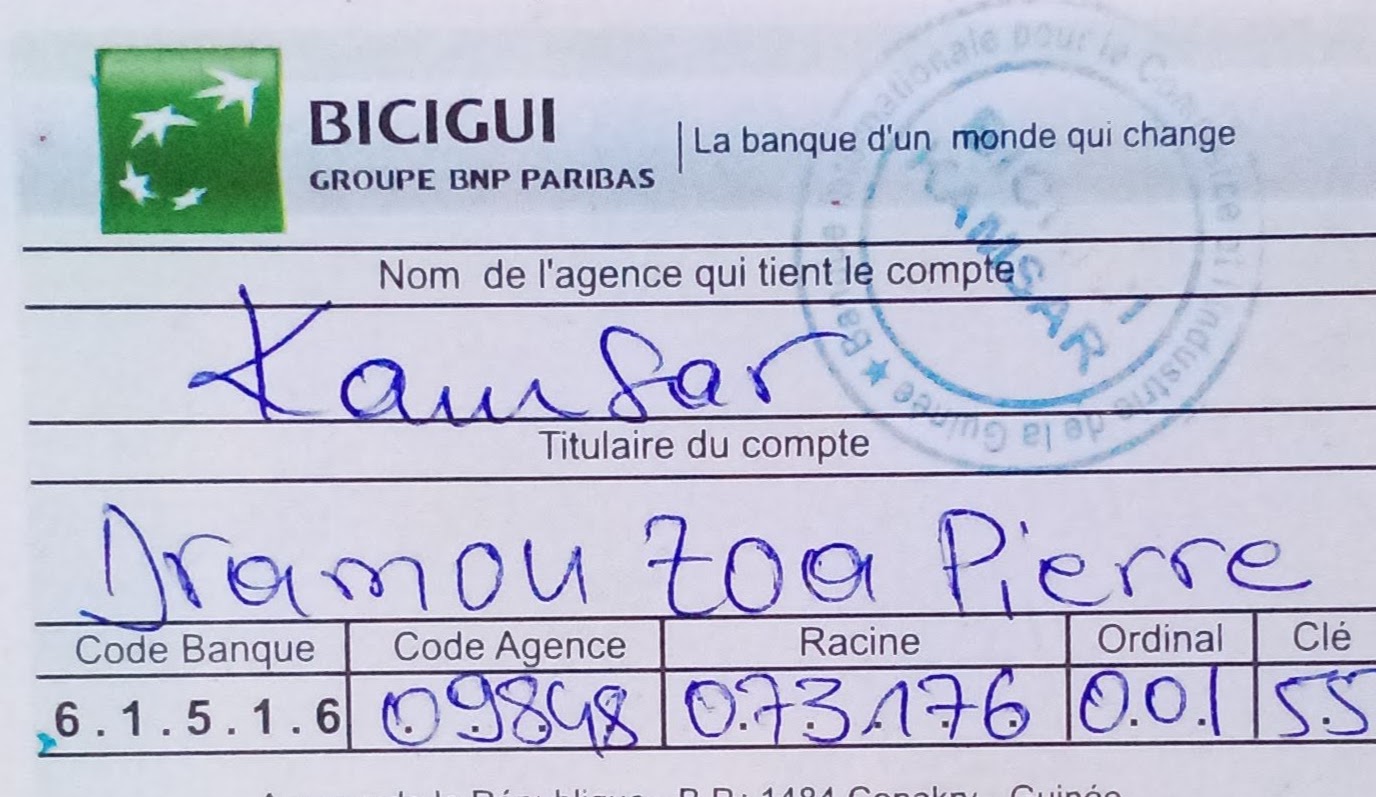 BICIGUI
GROUPE BNP PARIBAS
La banque d'un monde qui change
Banque Internationale pour le Commerce et l'Industrie de la Guinée ★
BICIGUI
KAMSAR
Nom de l'agence qui tient le compte
Kamsar
Titulaire du compte
Dramou Zoa Pierre
Code Banque Code Agence Racine Ordinal Clé
6.1.5.1.6 09848 073176 001 55
République B.P.: 1484 Conakry - Guinée